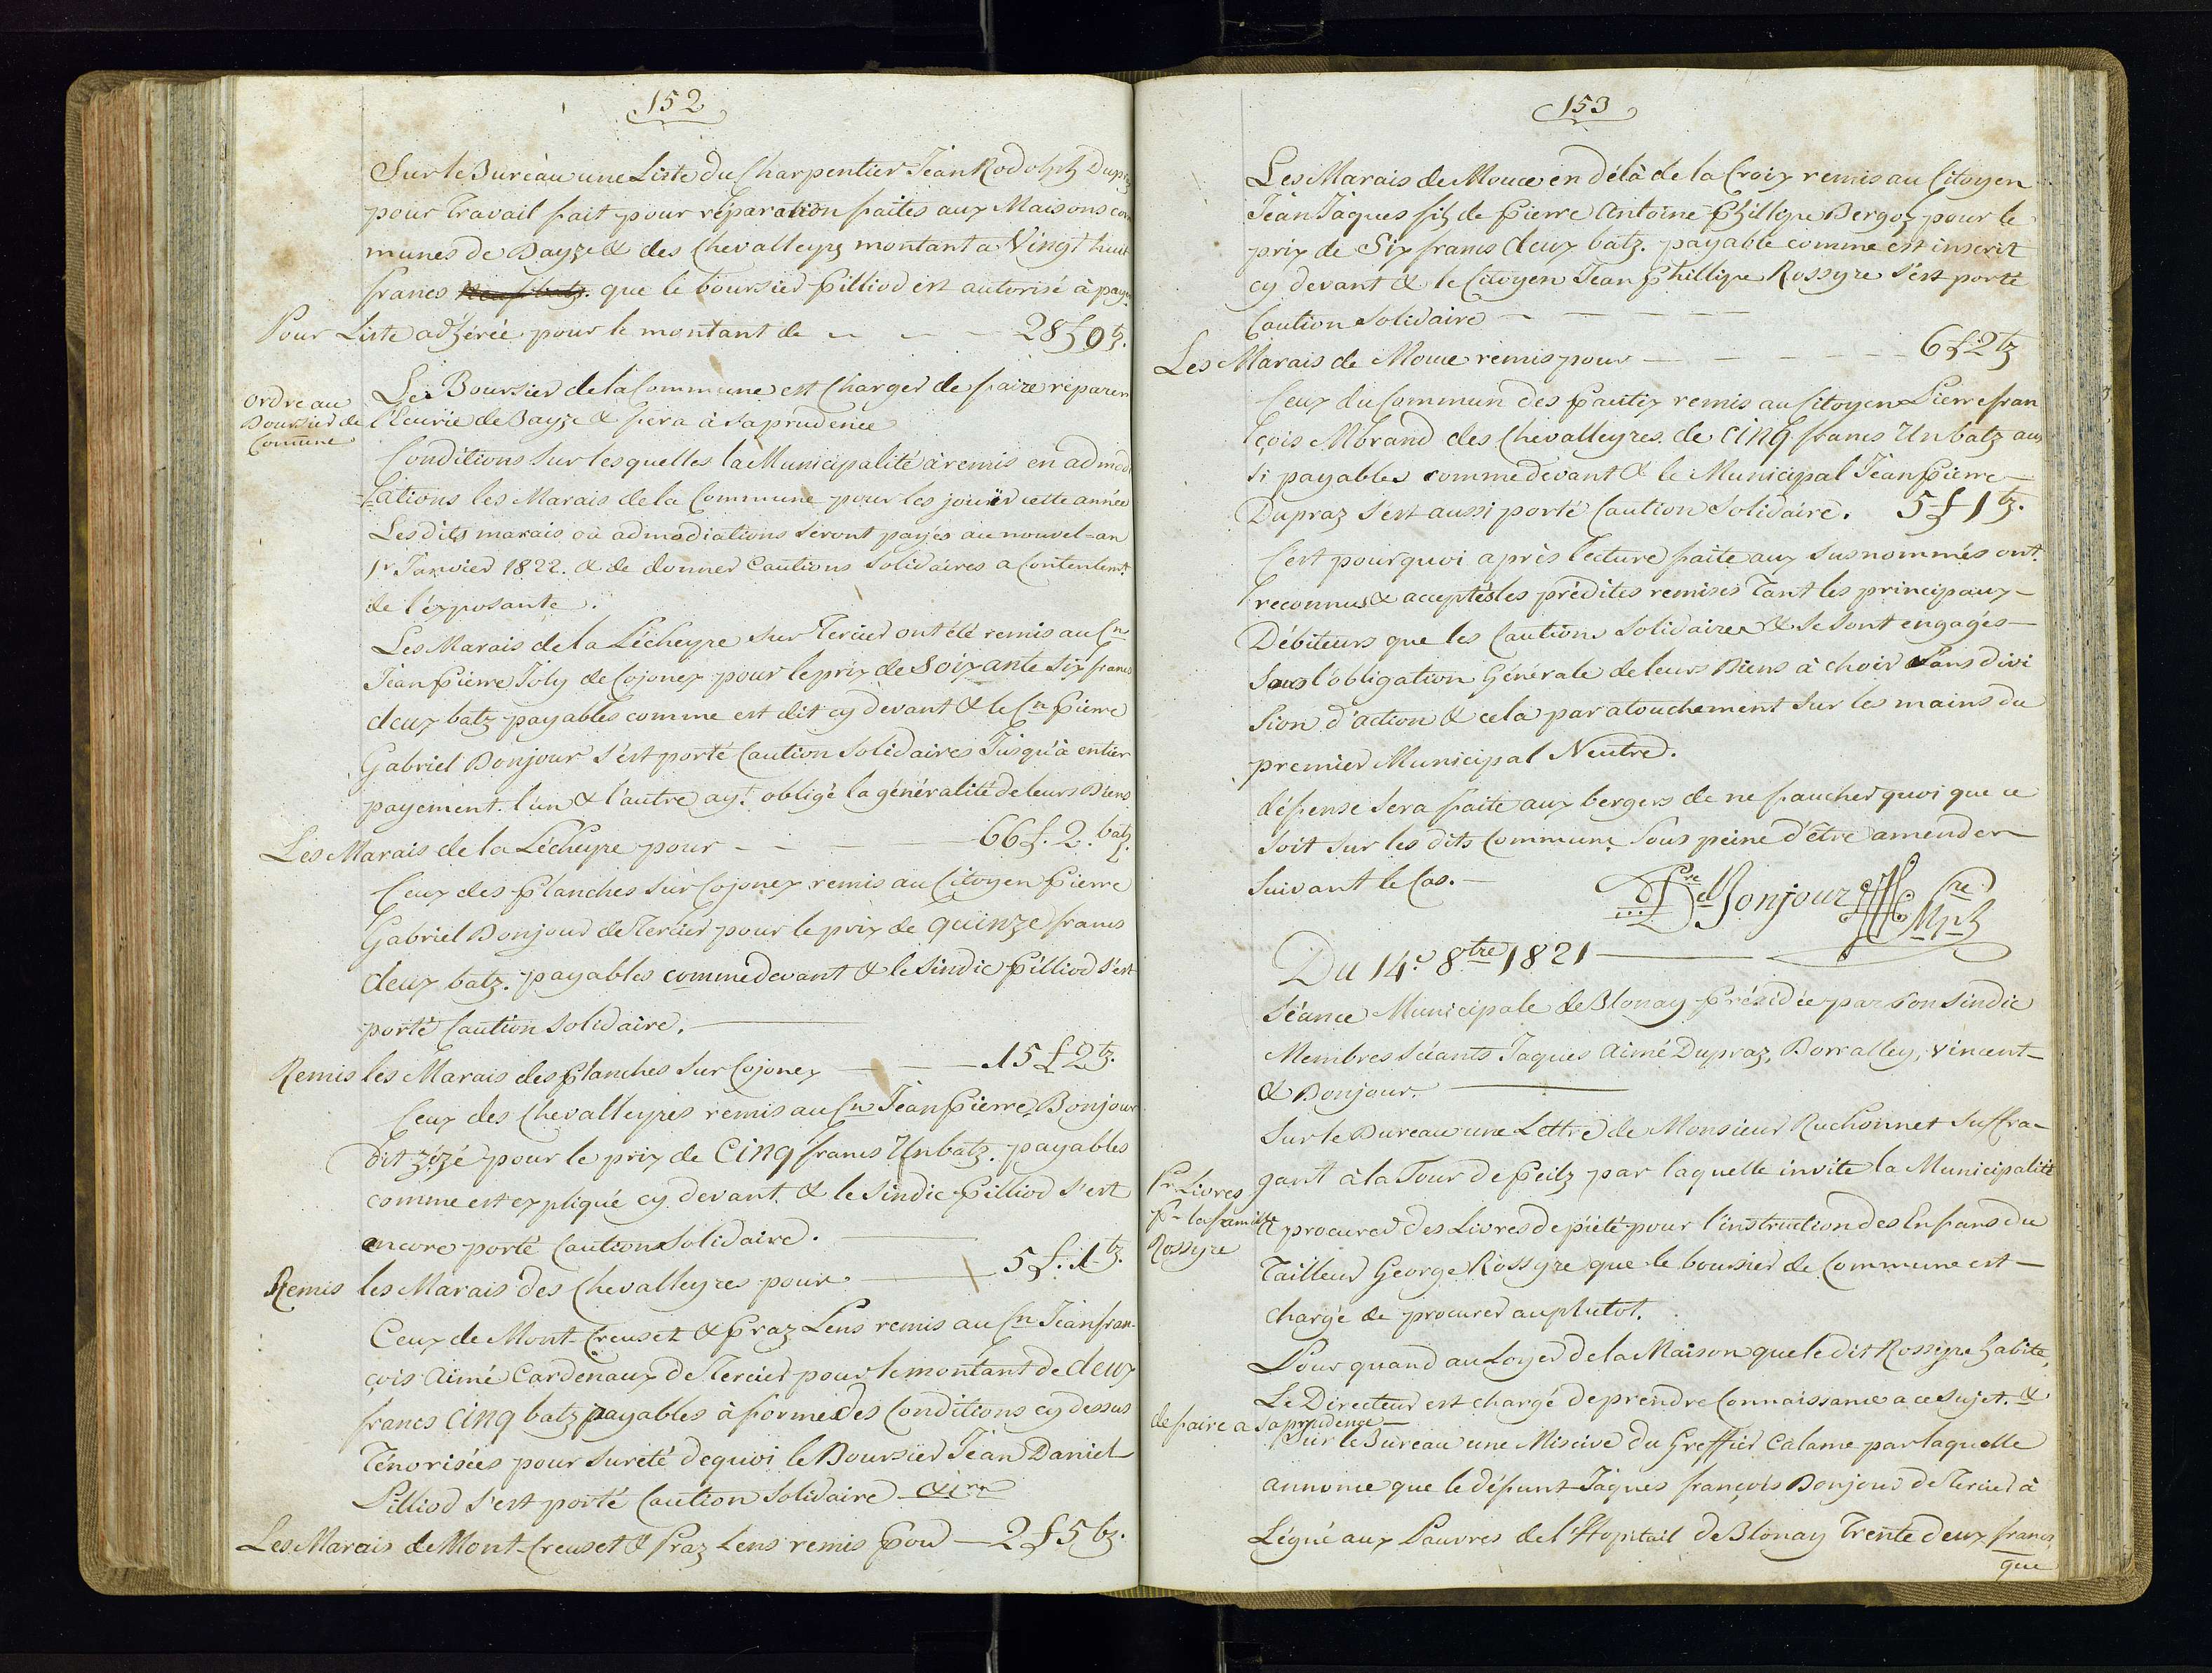 152
Sur le Bureau une Liste du Charpentier Jean Rodolph Dupraz
pour Travail fait pour réparation faites aux Maisons com
munes de Bayze & des Chevalleyrs montant a Vingt huit
francs neuf batz. que le boursier Pilliod est autorisé à payer
Pour Liste adhérée pour le montant de 28 f 0 bz.
ordre au
Boursier de
Commune
Le Boursier de la Commune est Charger de faire réparer
l'Ecurie de Bayze & fera à sa prudence
Conditions sur lesquelles la Municipalité à remis en admodi
=ations les Marais de la Commune pour les jouïr cette année
Les dits marais où admodiations seront payés au nouvel=an
1r Janvier 1822. & de donner Cautions Solidaires a Contentemt
de l'exposante.
Les Marais de la Lécheyre sur Tercier ont été remis au Cn
Jean Pierre Joly de Cojonex pour le prix de Soixante six francs
deux batz payables comme est dit cy devant & le Cn Pierre
Gabriel Bonjour s'est porté Caution Solidaires Jusqu'à entier
payement. l'un & l'autre ayt obligé la généralité de leurs Biens
Les Marais de la Lécheyre pour 66 f. 2. batz.
Ceux des Planches sur Cojonex remis au Citoyen Pierre
Gabriel Bonjour de Tercier pour le prix de quinze francs
deux batz. payables comme devant & le Sindic Pilliod s'est
porté Caution Solidaire.
Remis les Marais des Planches sur Cojonex 15 f 2 bz.
Ceux des Chevalleyres remis au Cn Jean Pierre Bonjour
dit zézé pour le prix de Cinq francs Un batz. payables
comme est expliqué cy devant. & le Sindic Pilliod s'est
encore porté Caution Solidaire.
Remis les Marais des Chevalleyres pour 5 f. 1 bz.
Ceux de Mont-Creuset & Praz Lens remis au Cn Jean fran-
çois Aimé Cardenaux de Tercier pour le montant de deux
francs Cinq batz payables à forme des Conditions cy dessus
Ténorisées pour sureté dequoi le Boursier Jean Daniel
Pilliod s'est porté Caution Solidaire
Les Marais de Mont-Creuset & Praz Lens remis pour 2 f 5 bz.
153
Les Marais de Mouce en délà de la Croix remis au Citoyen
Jean Jaques fils de Pierre Antoine Phillipe Bergoz pour le
prix de Six francs deux batz. payable comme est inscrit
cy devant & le Citoyen Jean Phillipe Rossyre s'est porté
Caution Solidaire
Les Marais de Mouce remis pour 6 f 2 bz
Ceux du Commun des Pautex remis au Citoyen Pierre fran
çois Mbrand des Chevalleyres. de Cinq francs Un batz aus
si payables comme devant & le Municipal Jean Pierre
Dupraz s'est aussi porté Caution Solidaire. 5 f 1 bz.
C'est pourquoi après lecture faite aux susnommés ont
reconnus & acceptés les prédites remises Tant les principaux
Débiteurs que les Cautions Solidaires & se sont engagés
Sous l'obligation Générale de leurs Biens à choix sans divi
sion d'action & cela par atouchement sur les mains du
premier Municipal Neutre.
défense sera faite aux bergers de ne faucher quoi que ce
soit sur les dits Commune sous peine d'être amender
suivant le Cas.
Bonjour
Du 14e 8tre 1821
Séance Municipale de Blonay Présidée par son Sindic
Membres Séants Jaques Aimé Dupraz, Borralley, Vincent
& Bonjour.
Sur le Bureau une Lettre de Monsieur Ruchonnet Suffra-
gant à la Tour de Peilz par laquelle invite la Municipalité
Pr Livres
Pr la famille
Rossyre
de procurer des Livres de piété pour l'instruction des Enfans du
Tailleur George Rossyre que le boursier de Commune est
chargé de procurer au plutot.
Pour quand au Loyer de la Maison que le dit Rossyre habite,
Le Directeur est chargé de prendre Connaissance a ce Sujet. &
de faire a sa prudence
Sur le Bureau une Miscive du Greffier Calame par laquelle
annonce que le défunt Jaques françois Bonjour de Tercier à
Légué aux Pauvres de l'Hopitail de Blonay Trente deux francs
que